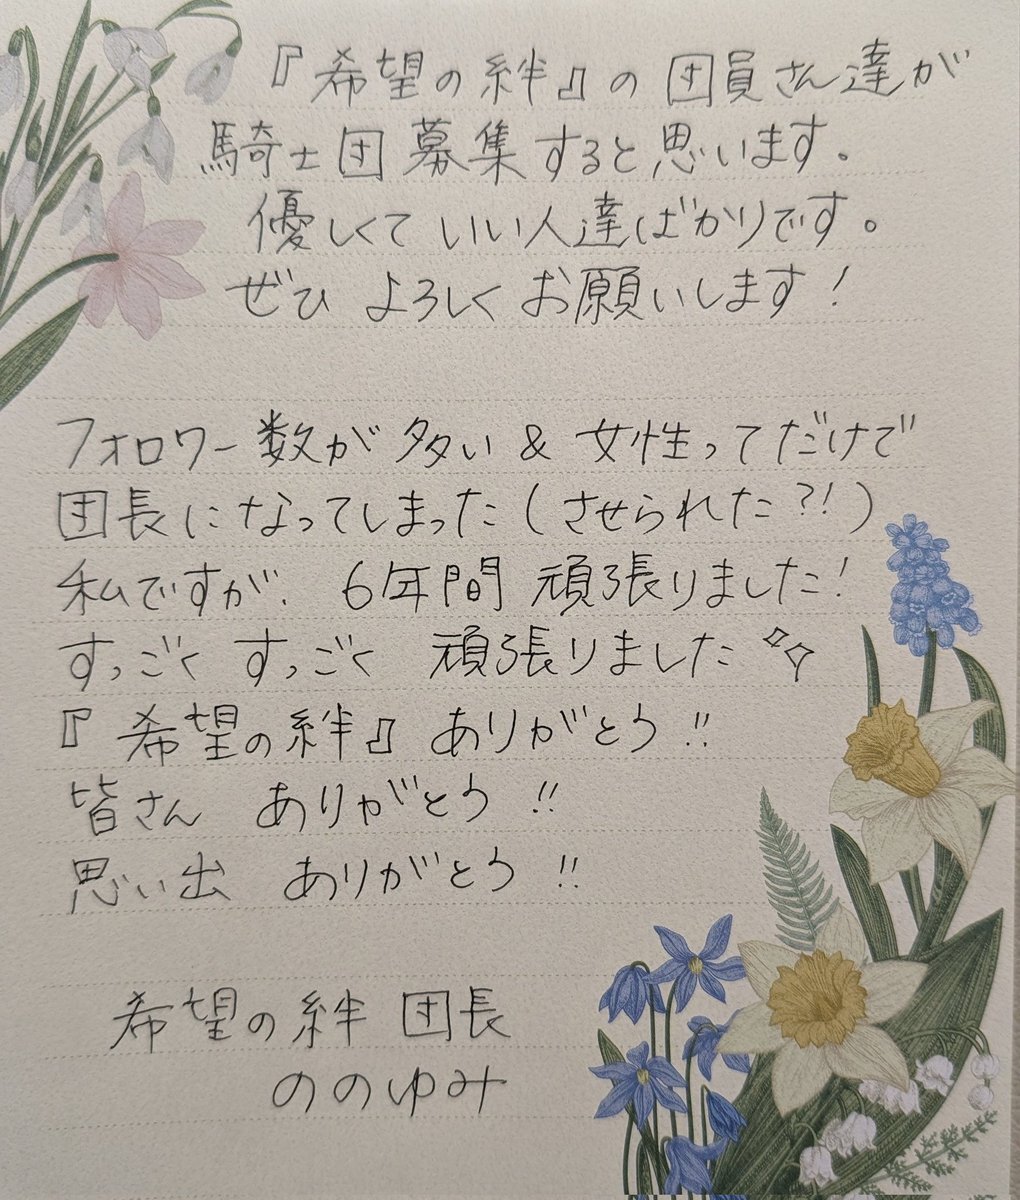 『希望の絆』の団員さん達が
騎士団募集すると思います。
優しくていい人達ばかりです。
ぜひ よろしくお願いします!
フォロワー数が多い & 女性ってだけで
団長になってしまった(させられた?!)
私ですが、6年間 頑張りました!
すっごく すっごく 頑張りました✧✧
『希望の絆』ありがとう!!
皆さん ありがとう!!
思い出 ありがとう!!
希望の絆 団長
ののゆみ